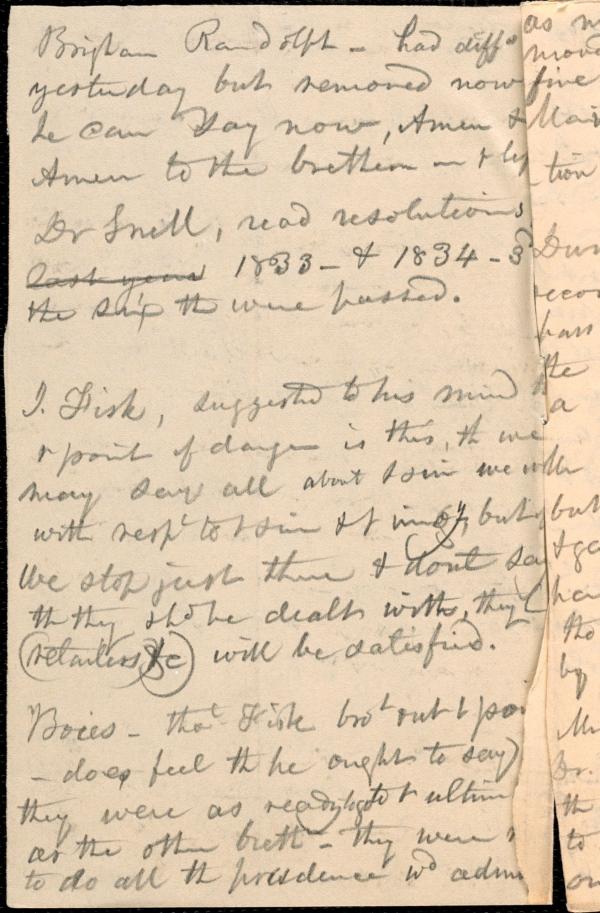 Brigham Randolph - had diffs
yesterday but removed now
he can say now, Amen &
Amen to the brethern
Dr Snell, read resolutions
last year 1833 - & 1834 - 3
the six th were passed.
J. Fisk, suggested to his mind
t point of danger is this, th we
may say all about t sin we
with respt to t sin & t but
We stop just there & don't say
th they shd be dealt with, they
(retailers &c) will be satisfied.
Boies - thot Fisk brot out t poi
- does feel th he ought to say
they were as ready to go to t ultim
as the other breth - they were
to do all th prudence wd adm
as
moved
five
Mai
tion
Dun
recor
pass
the
a
but
& ge
ha
tho
by
Dr.
th
to